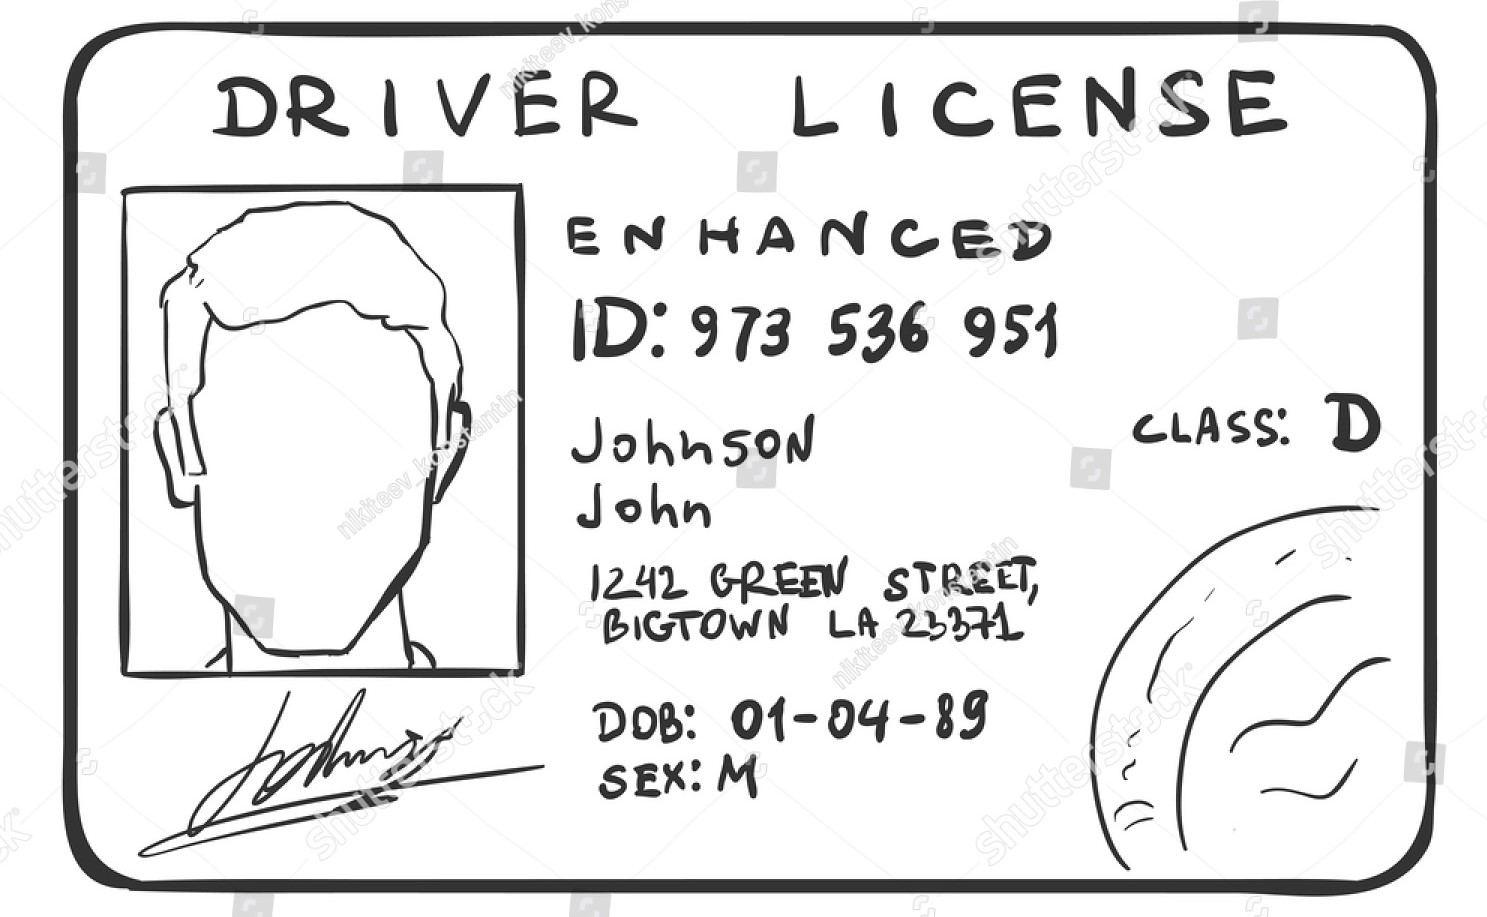 DRIVER LICENSE
ENHANCED
ID: 973 536 951
CLASS: D
Johnson
John
1242 GREEN STREET,
BIGTOWN LA 23371
DOB: 01-04-89
SEX: M
Johnson
shutterstock
nikiteev_konstantin